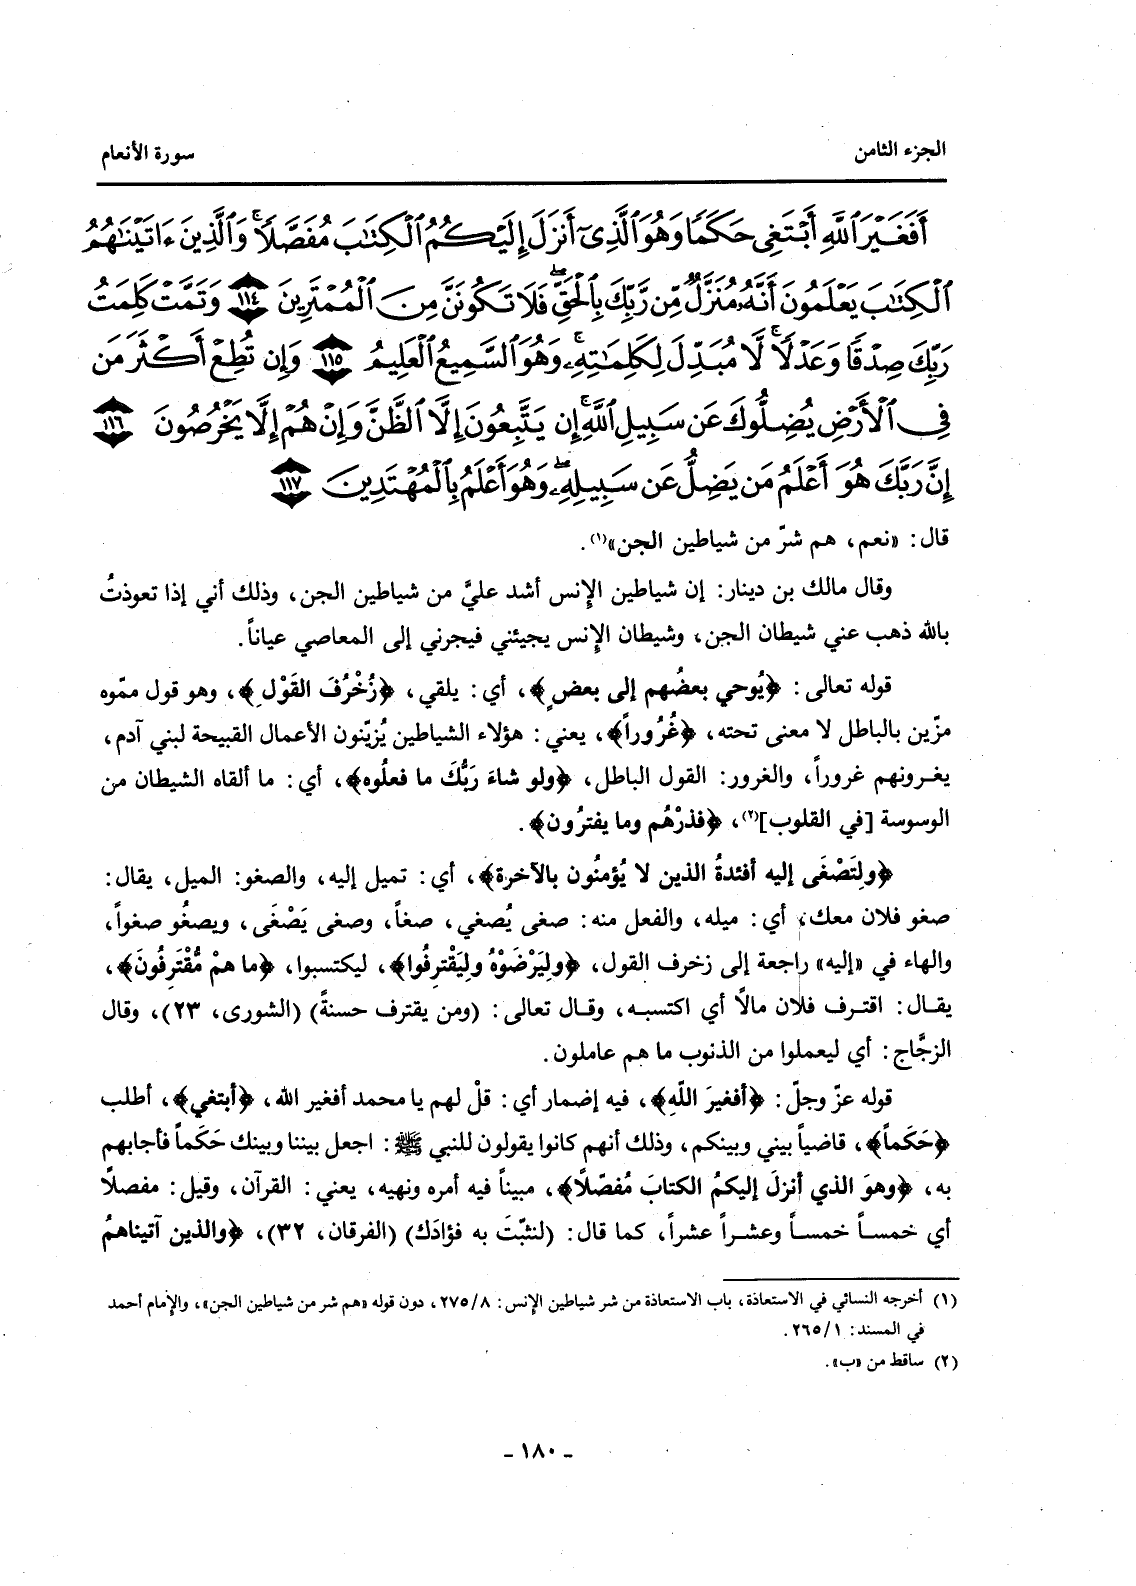 الجزء الثامن
سورة الأنعام
أَفَغَيْرَ ٱللَّهِ أَبْتَغِى حَكَمًا وَهُوَ ٱلَّذِىٓ أَنزَلَ إِلَيْكُمُ ٱلْكِتَٰبَ مُفَصَّلًا ۚ وَٱلَّذِينَ ءَاتَيْنَٰهُمُ
ٱلْكِتَٰبَ يَعْلَمُونَ أَنَّهُۥ مُنَزَّلٌ مِّن رَّبِّكَ بِٱلْحَقِّ ۖ فَلَا تَكُونَنَّ مِنَ ٱلْمُمْتَرِينَ ١١٤ وَتَمَّتْ كَلِمَتُ
رَبِّكَ صِدْقًا وَعَدْلًا ۚ لَّا مُبَدِّلَ لِكَلِمَٰتِهِۦ ۚ وَهُوَ ٱلسَّمِيعُ ٱلْعَلِيمُ ١١٥ وَإِن تُطِعْ أَكْثَرَ مَن
فِى ٱلْأَرْضِ يُضِلُّوكَ عَن سَبِيلِ ٱللَّهِ ۚ إِن يَتَّبِعُونَ إِلَّا ٱلظَّنَّ وَإِنْ هُمْ إِلَّا يَخْرُصُونَ ١١٦
إِنَّ رَبَّكَ هُوَ أَعْلَمُ مَن يَضِلُّ عَن سَبِيلِهِۦ ۖ وَهُوَ أَعْلَمُ بِٱلْمُهْتَدِينَ ١١٧
قال: «نعم، هم شرّ من شياطين الجن»(١).
وقال مالك بن دينار: إن شياطين الإنس أشد عليَّ من شياطين الجن، وذلك أني إذا تعوذتُ
بالله ذهب عني شيطان الجن، وشيطان الإنس يجيئني فيجرني إلى المعاصي عياناً.
قوله تعالى: ﴿يُوحي بعضُهم إلى بعضٍ﴾، أي: يلقي، ﴿زُخْرُفَ القَوْلِ﴾، وهو قول مموّه
مزّين بالباطل لا معنى تحته، ﴿غُرُوراً﴾، يعني: هؤلاء الشياطين يُزيّنون الأعمال القبيحة لبني آدم،
يغرونهم غروراً، والغرور: القول الباطل، ﴿ولو شاءَ رَبُّكَ ما فعلُوه﴾، أي: ما ألقاه الشيطان من
الوسوسة [في القلوب](٢)، ﴿فذرْهُم وما يفترُون﴾.
﴿ولِتَصْغَى إليه أفئدةُ الذين لا يُؤمنُون بالآخرة﴾، أي: تميل إليه، والصغو: الميل، يقال:
صغو فلان معك، أي: ميله، والفعل منه: صغى يُصغي، صغاً، وصغى يَصْغَى، ويصغُو صغواً،
والهاء في «إليه» راجعة إلى زخرف القول، ﴿وليَرْضَوْهُ وليَقْترِفُوا﴾، ليكتسبوا، ﴿ما همْ مُّقْتَرِفُونَ﴾،
يقال: اقترف فلان مالًا أي اكتسبه، وقال تعالى: (ومن يقترف حسنةً) (الشورى، ٢٣)، وقال
الزجَّاج: أي ليعملوا من الذنوب ما هم عاملون.
قوله عزّ وجلّ: ﴿أفغيرَ اللّهِ﴾، فيه إضمار أي: قلْ لهم يا محمد أفغير الله، ﴿أبتغي﴾، أطلب
﴿حَكَماً﴾، قاضياً بيني وبينكم، وذلك أنهم كانوا يقولون للنبي ﷺ: اجعل بيننا وبينك حَكَماً فأجابهم
به، ﴿وهوَ الذي أنزلَ إليكمُ الكتابَ مُفصّلًا﴾، مبيناً فيه أمره ونهيه، يعني: القرآن، وقيل: مفصلًا
أي خمساً خمساً وعشراً عشراً، كما قال: (لنثبّتَ به فؤادَك) (الفرقان، ٣٢)، ﴿والذين آتيناهمُ
(١) أخرجه النسائي في الاستعاذة، باب الاستعاذة من شر شياطين الإنس: ٨/ ٢٧٥، دون قوله «هم شر من شياطين الجن»، والإمام أحمد
في المسند: ١/ ٢٦٥.
(٢) ساقط من «ب».
- ١٨٠ -